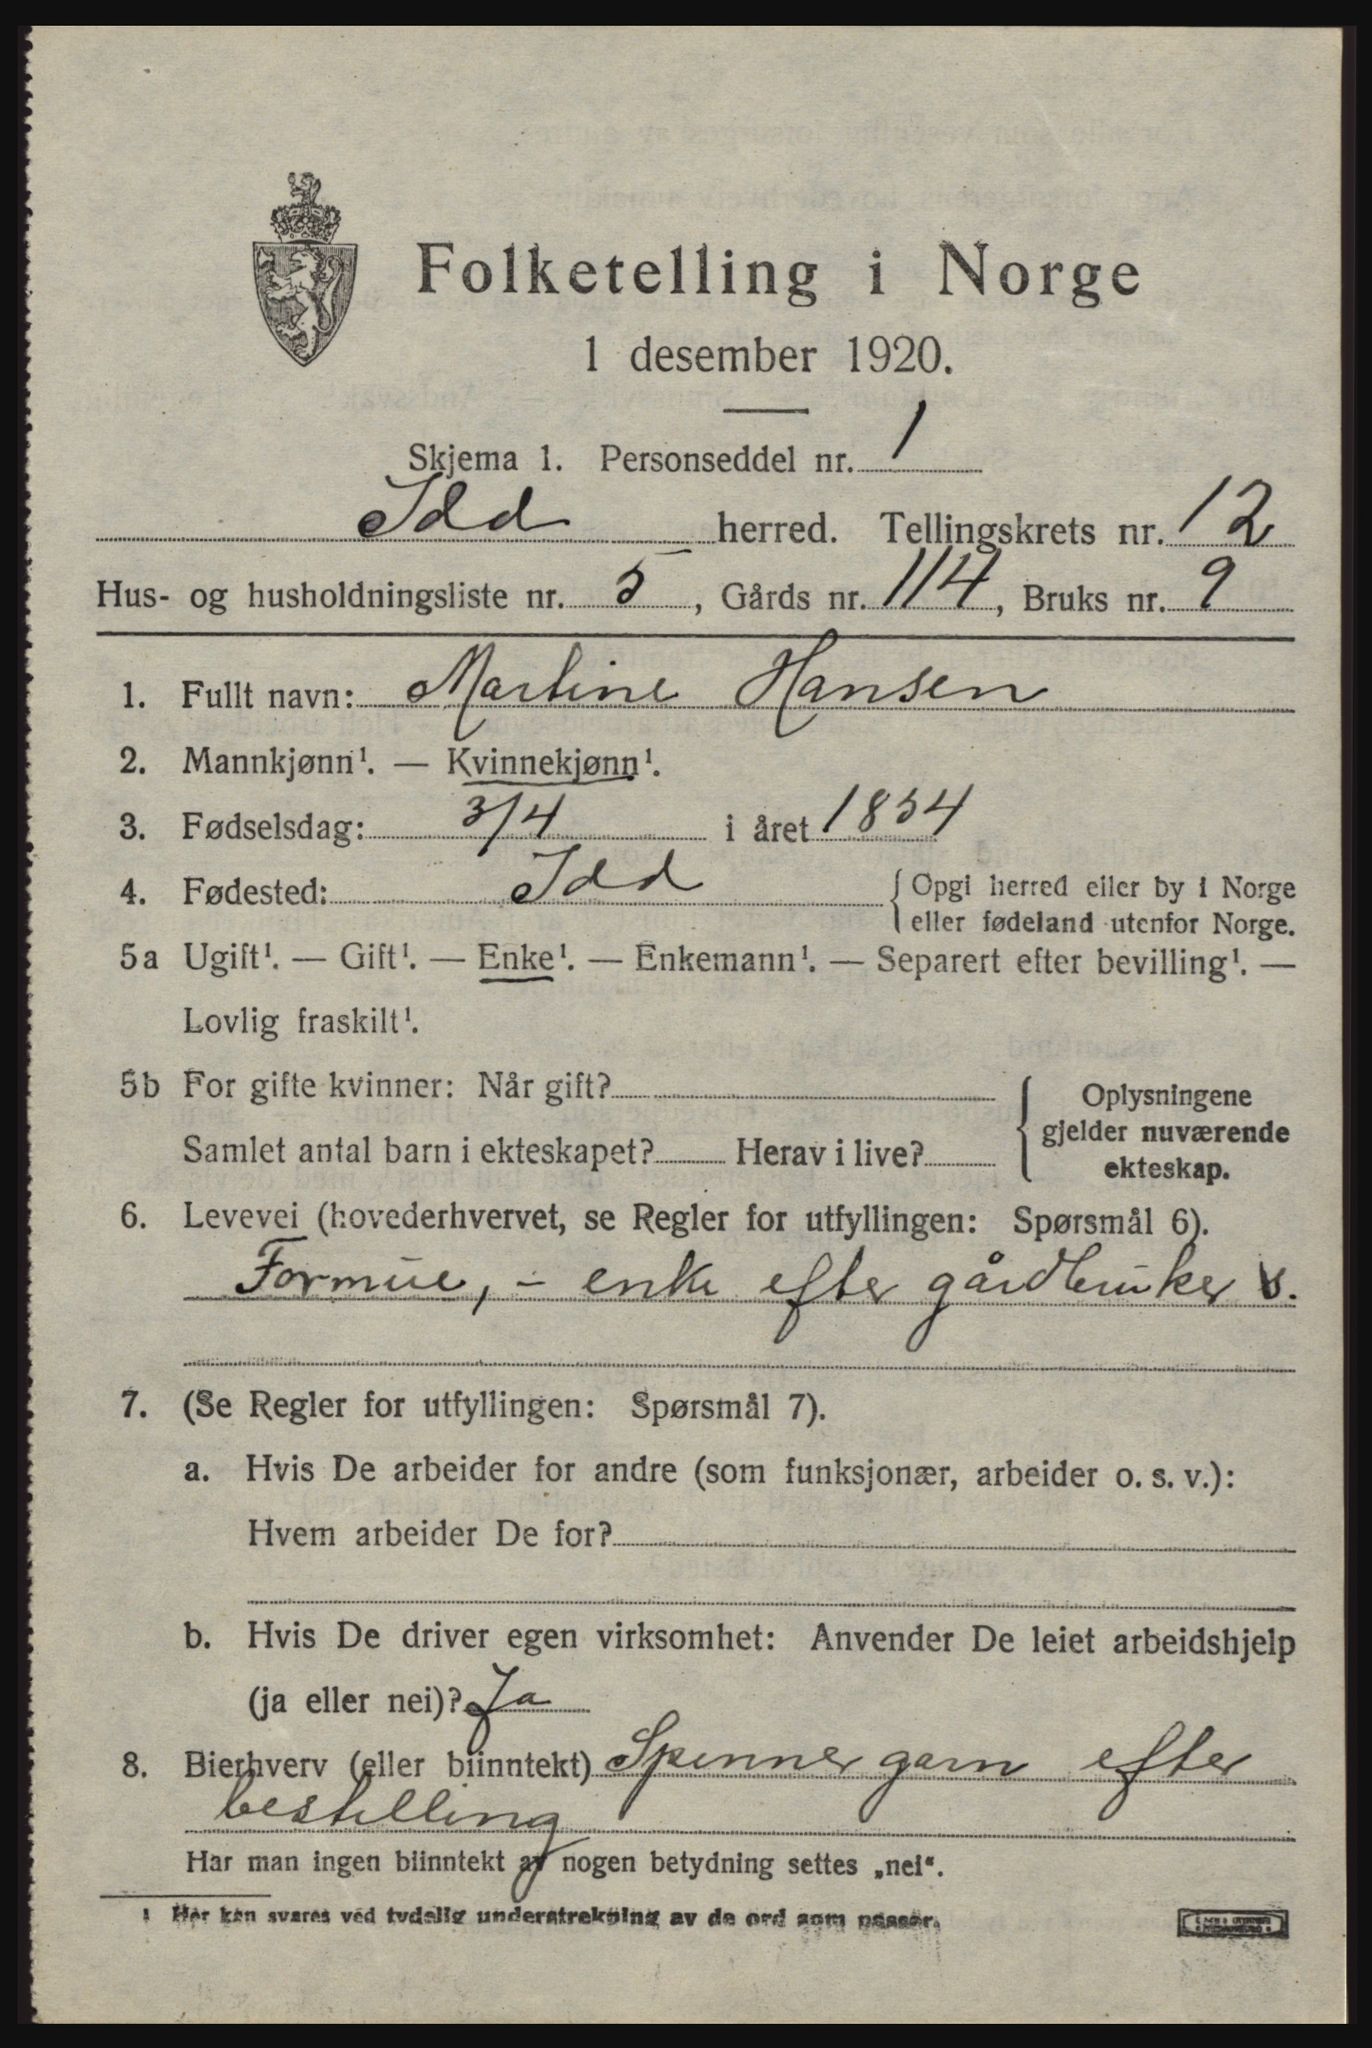 Folketelling i Norge
1 desember 1920.
Skjema 1. Personseddel nr. 1
Idd herred. Tellingskrets nr. 12
Hus- og husholdningsliste nr. 5, Gårds nr. 114, Bruks nr. 9
1. Fullt navn: Martine Hansen
2. Mannkjønn¹. — Kvinnekjønn¹.
3. Fødselsdag: 3/4 i året 1854
4. Fødested: Idd { Opgi herred eller by i Norge
eller fødeland utenfor Norge.
5a Ugift¹. — Gift¹. — Enke¹. — Enkemann¹. — Separert efter bevilling¹. —
Lovlig fraskilt¹.
5b For gifte kvinner: Når gift?
Samlet antal barn i ekteskapet? Herav i live?
{ Oplysningene
gjelder nuværende
ekteskap.
6. Levevei (hovederhvervet, se Regler for utfyllingen: Spørsmål 6).
Formue, - enke efter gårdbruker s.
7. (Se Regler for utfyllingen: Spørsmål 7).
a. Hvis De arbeider for andre (som funksjonær, arbeider o. s. v.):
Hvem arbeider De for?
b. Hvis De driver egen virksomhet: Anvender De leiet arbeidshjelp
(ja eller nei)? Ja
8. Bierhverv (eller biinntekt) Spinner garn efter
bestilling
Har man ingen biinntekt av nogen betydning settes „nei“.
1 Her kan svares ved tydelig understrekning av de ord som passer.